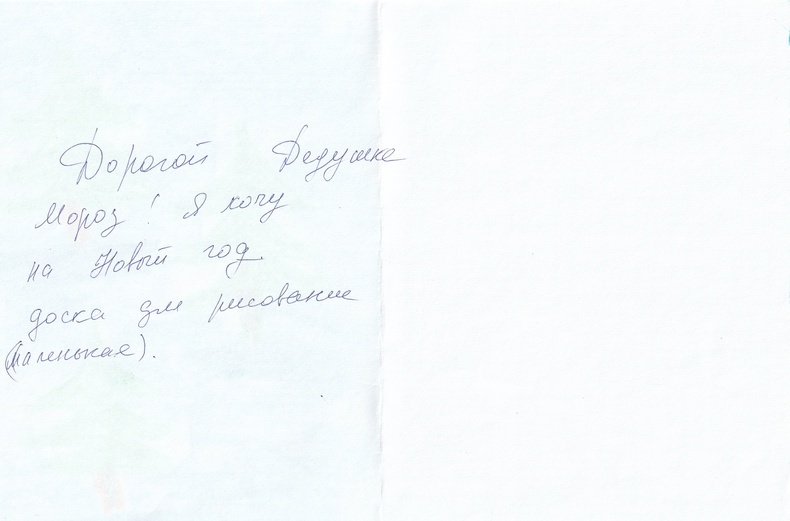 Дорогой Дедушка
Мороз! Я хочу
на Новый год
доска для рисование
(маленькая).